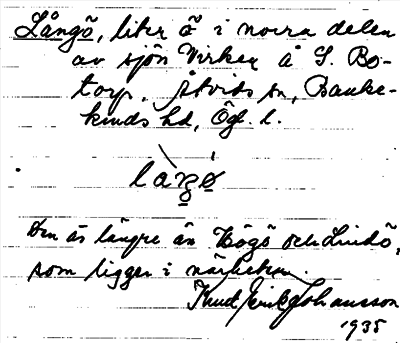 Långö, liten ö i norra delen
av sjön Virken å S. Bo-
torp, Åtvids sn, Banke-
kinds hd, Ögl. l.
låŋö
Den är längre än Högö och Lindö,
som ligger i närheten.
Knut Erik Johansson
1935